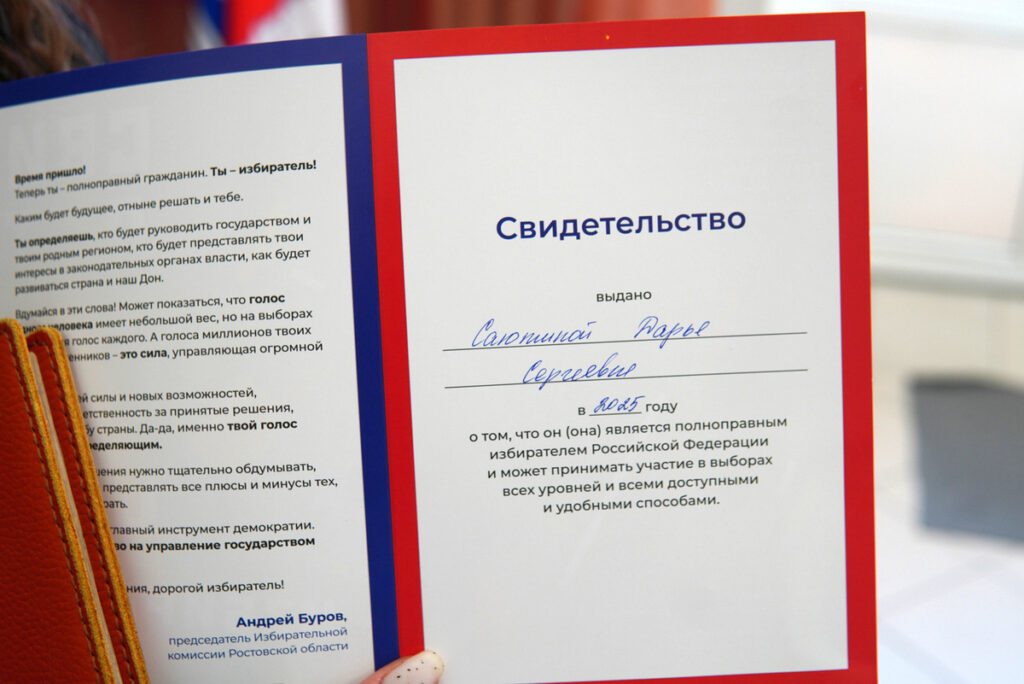 Время пришло!
Теперь ты – полноправный гражданин. Ты – избиратель!
Каким будет будущее, отныне решать и тебе.
Ты определяешь, кто будет руководить государством и
твоим родным регионом, кто будет представлять твои
интересы в законодательных органах власти, как будет
развиваться страна и наш Дон.
Вдумайся в эти слова! Может показаться, что голос
человека имеет небольшой вес, но на выборах
голос каждого. А голоса миллионов твоих
– это сила, управляющая огромной
силы и новых возможностей,
за принятые решения,
страны. Да-да, именно твой голос
нужно тщательно обдумывать,
представлять все плюсы и минусы тех,
главный инструмент демократии.
на управление государством
дорогой избиратель!
Андрей Буров,
председатель Избирательной
комиссии Ростовской области
Свидетельство
выдано
Саютиной Дарье
Сергеевне
в 2025 году
о том, что он (она) является полноправным
избирателем Российской Федерации
и может принимать участие в выборах
всех уровней и всеми доступными
и удобными способами.